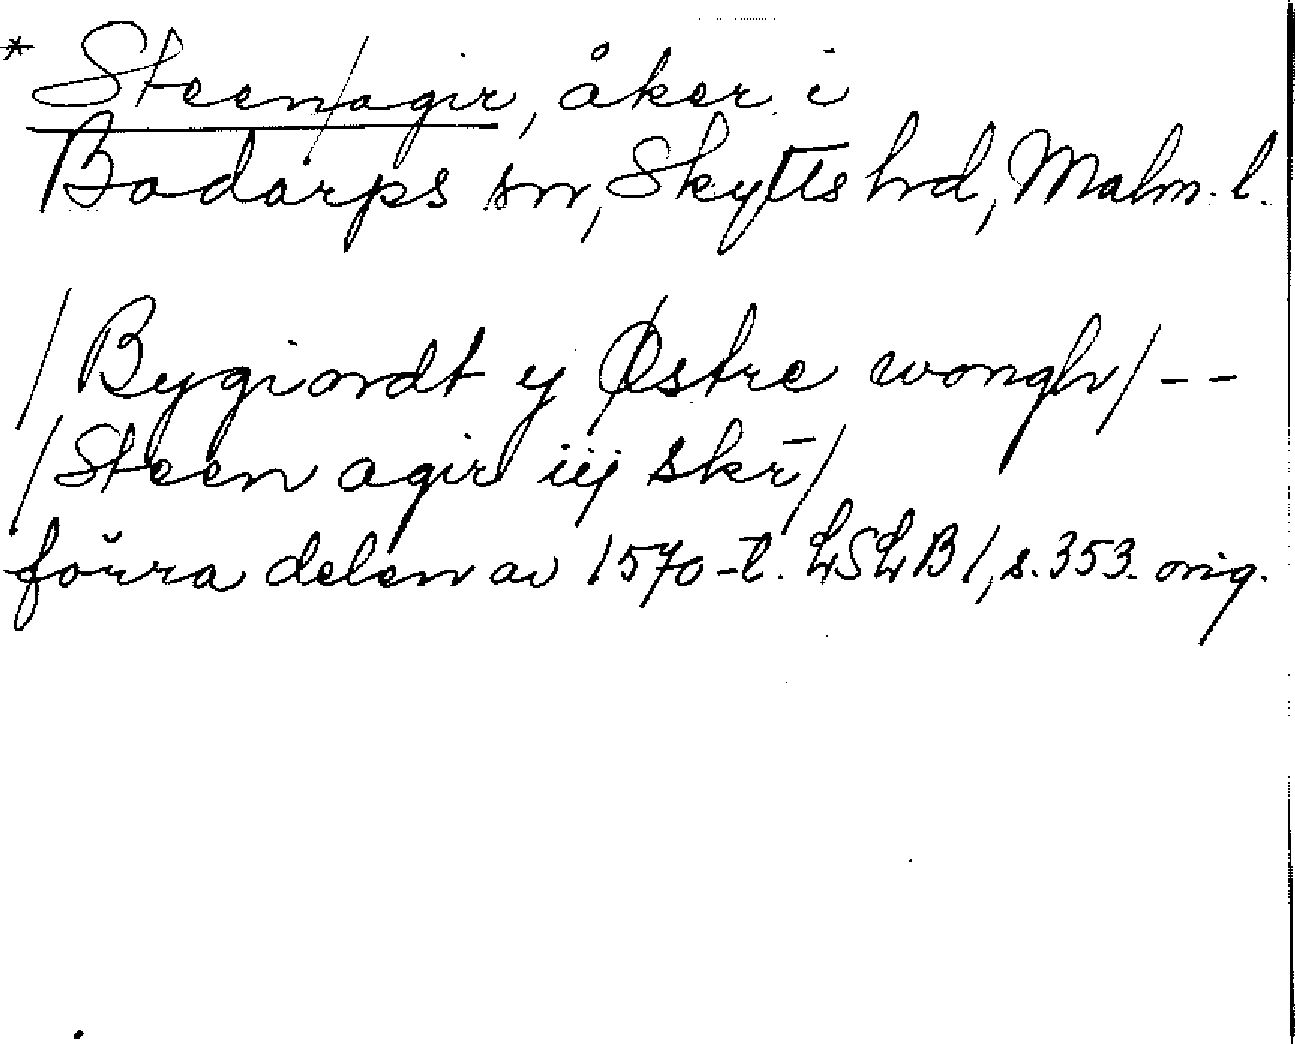 * Steen/agir, åker i
Bodarps sn, Skytts hd, Malm. l.
/Bygiordt y Østre wongh/--
/Steen agir iij skr̄/
förra delen av 1570-t. LSLB 1, s. 353. orig.